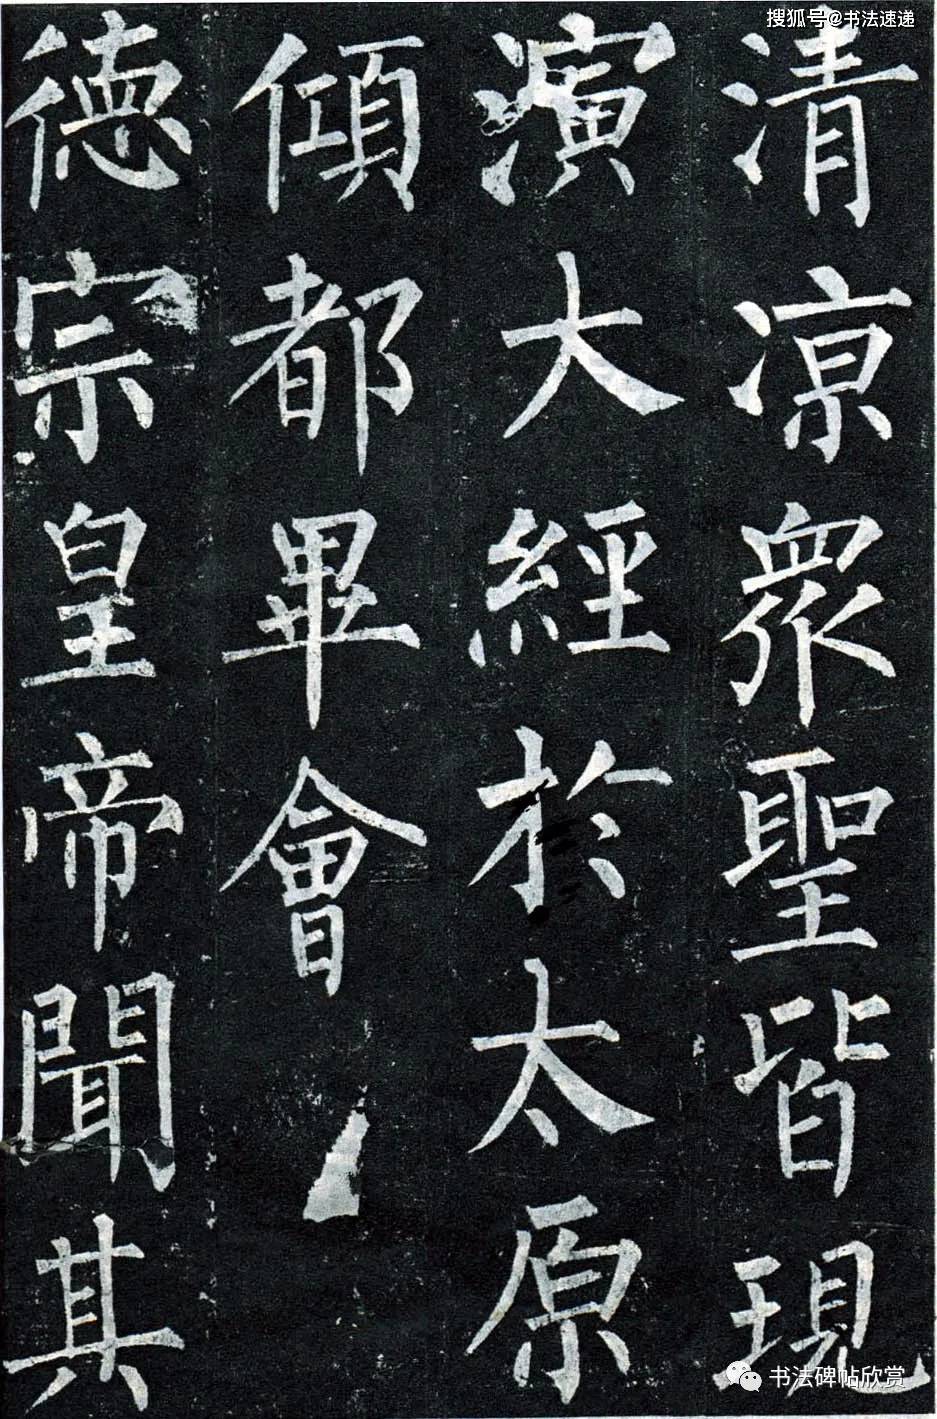 搜狐号@书法速递
清凉衆聖皆現
演大經於太原
傾都畢會
德宗皇帝聞其
书法碑帖欣赏